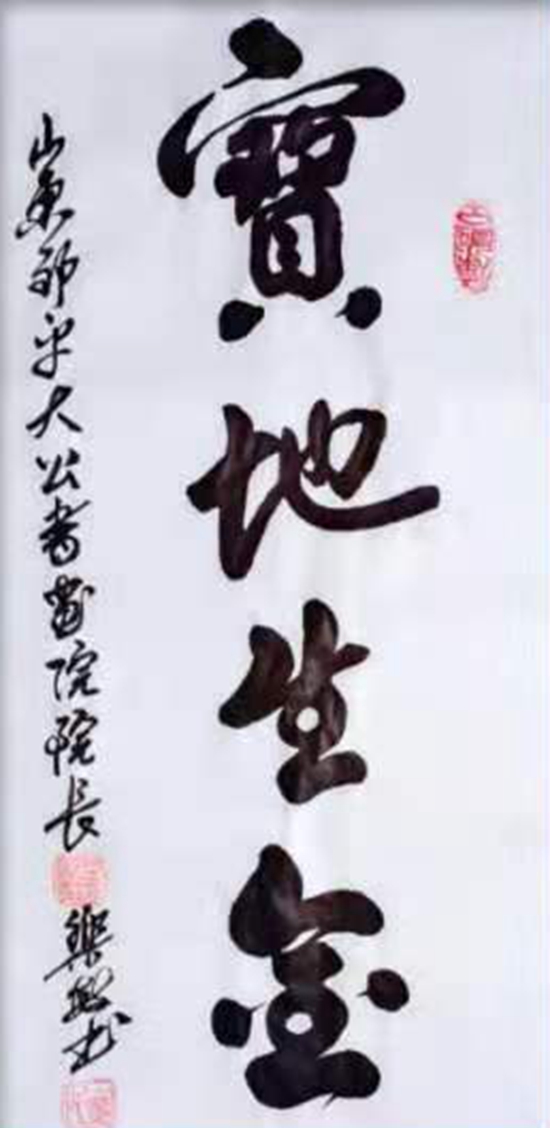 寶地生金
山東邹平大公書畫院院長
樂
书